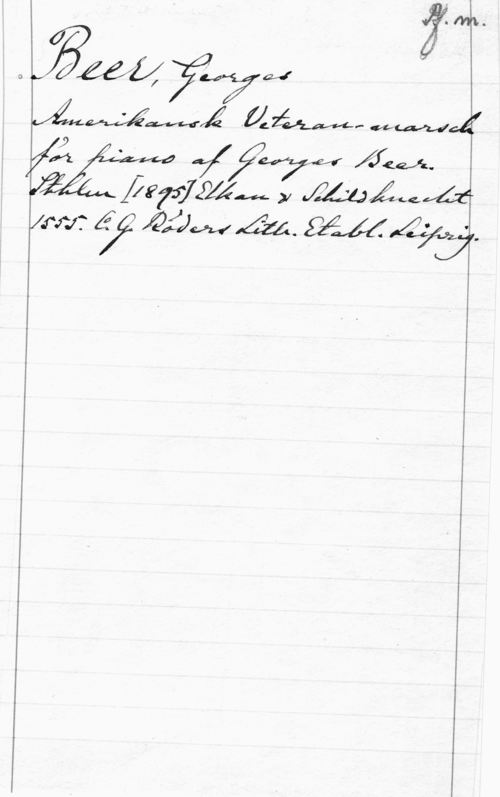 Pf. m.
Beer, Georges
Amerikansk Veteran-marsch
för piano af Georges Beer.
Sthlm [1895] Elkan & Schildknecht
1555. C. G. Röders Lith. Etabl. Leipzig.